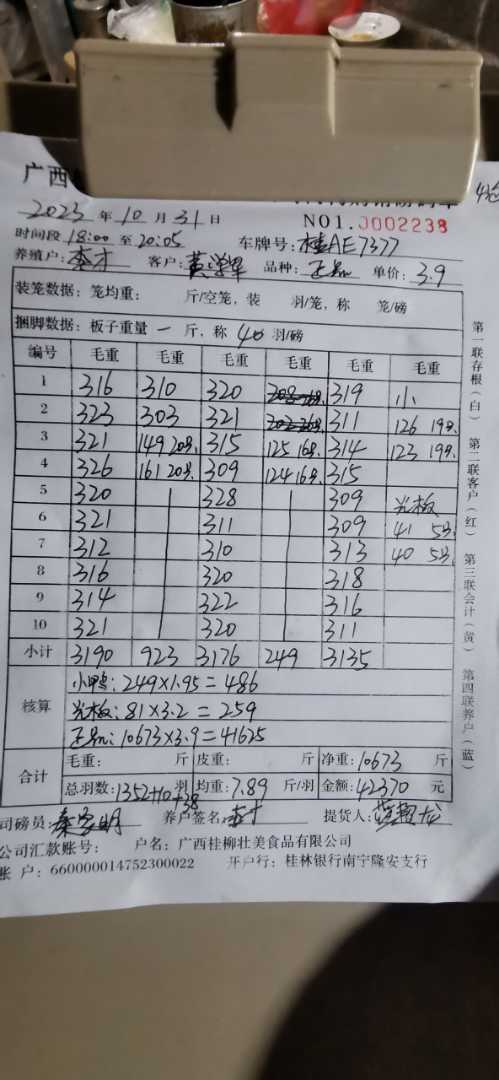 广西
2023 年 10 月 31 日
NO1. J002238
时间段 18:00 至 20:05 车牌号: 桂AE7377
养殖户: 李才 客户: 黄 品种: 单价: 3.9
装笼数据: 笼均重: 斤/空笼, 装 羽/笼, 称 笼/磅
捆脚数据: 板子重量 一 斤, 称 40 羽/磅
编号 毛重 毛重 毛重 毛重 毛重 毛重
1 316 310 320 319 小
2 323 303 321 311 126 19只
3 321 149 20只 315 125 16只 314 123 19只
4 326 161 20只 309 124 16只 315
5 320 328 309 光板
6 321 311 309 41 5只
7 312 310 313 40 5只
8 316 320 318
9 314 322 316
10 321 320 311
小计 3190 923 3176 249 3135
核算
小鸭: 249×1.95=486
光板: 81×3.2=259
10673×3.9=41625
合计
毛重: 斤 皮重: 斤 净重: 10673 斤
总羽数: 1352+10+38 羽 均重: 7.89 斤/羽 金额: 42370 元
司磅员: 秦家明 养户签名: 李才 提货人:
公司汇款账号: 户名: 广西桂柳壮美食品有限公司
账 户: 660000014752300022 开户行: 桂林银行南宁隆安支行
第一联存根(白) 第二联客户(红) 第三联会计(黄) 第四联养户(蓝)